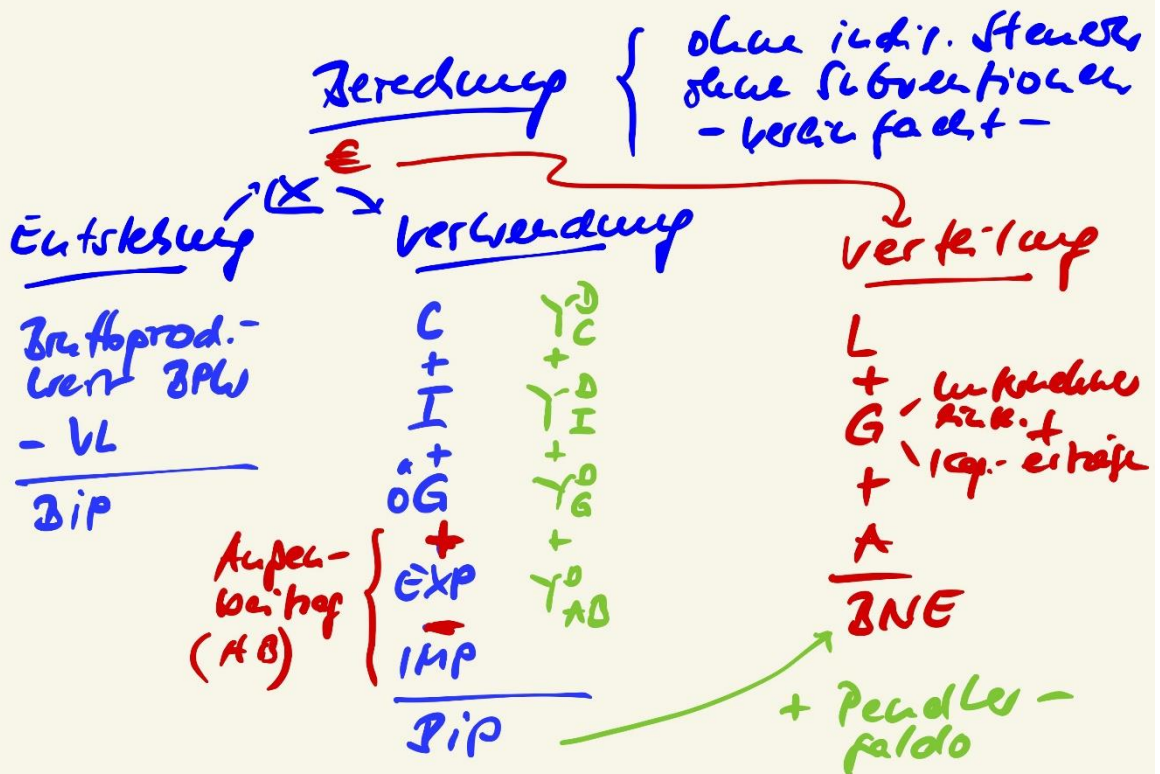 Berechnung
ohne indir. Steuern
ohne Subventionen
- vereinfacht -
€
(X)
Entstehung
Bruttoprod.-
wert BPW
- VL
BiP
Verwendung
C
+
I
+
öG
+
EXP
-
IMP
BiP
Außen-
beitrag
(AB)
Y D C
+
Y D I
+
Y D G
+
Y D AB
Verteilung
L
+
G
Unternehmer
eink. +
Kap.-erträge
+
A
BNE
+ Pendler-
saldo